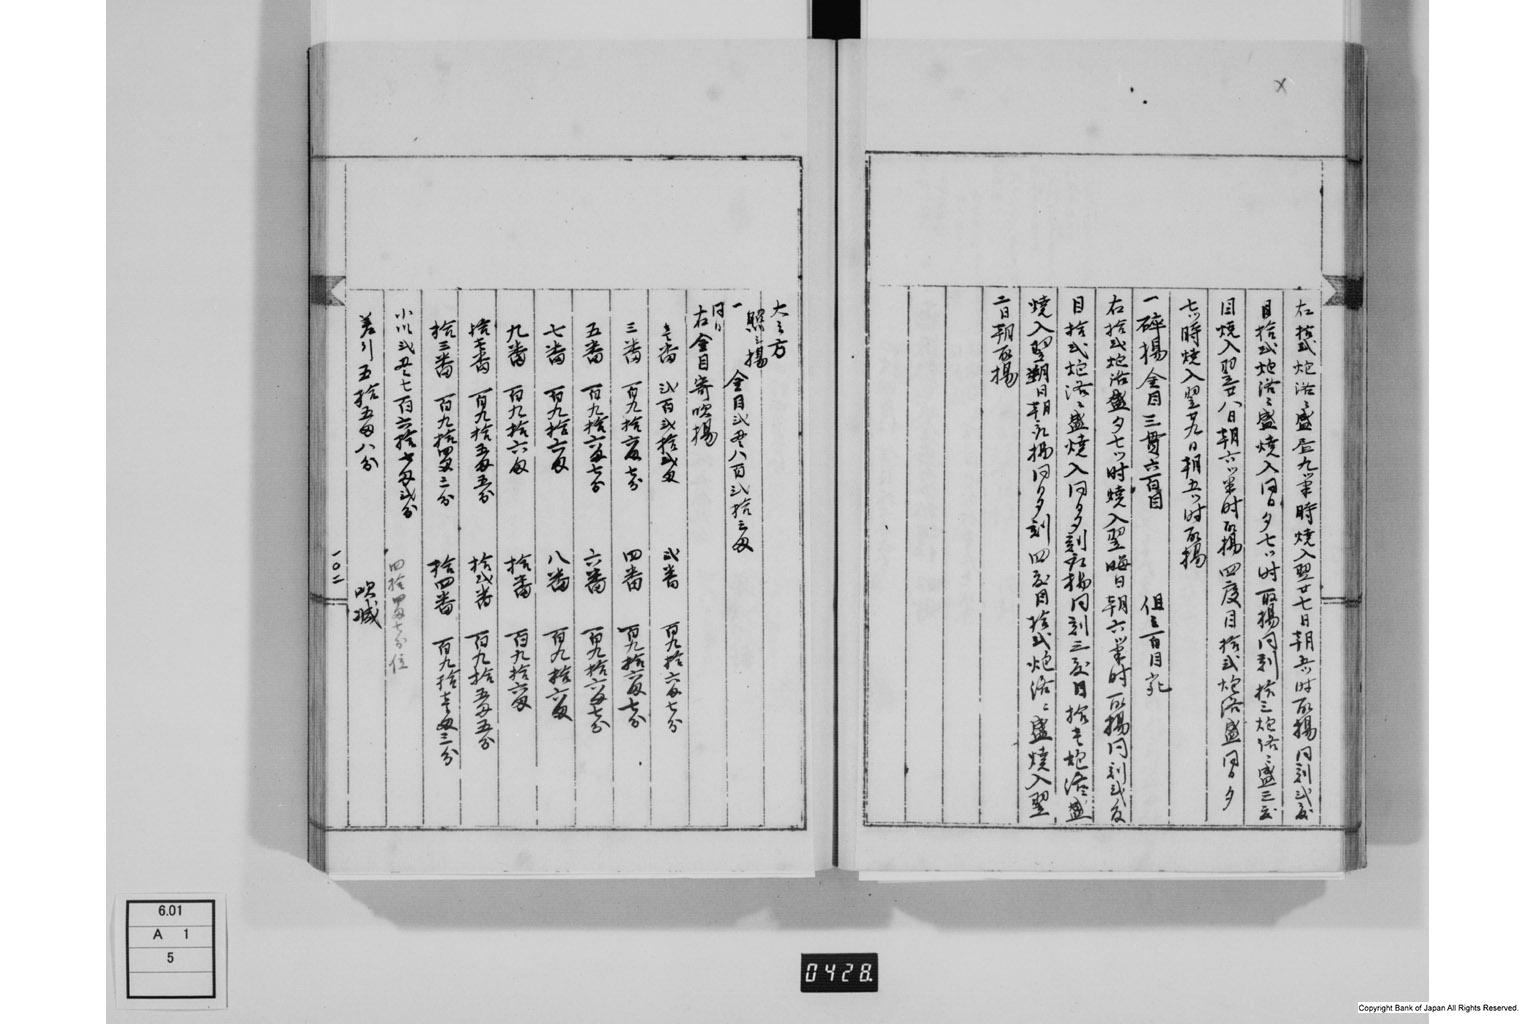 右拾弐炮烙ニ盛昼九半時焼入翌廿七日朝五ツ時取揚同刻弐度
目拾弐炮烙ニ盛焼入同日夕七ツ時取揚同刻拾三炮烙ニ盛三度
目焼入翌廿八日朝六ツ半時取揚四度目拾弐炮烙盛同日夕
七ツ時焼入翌廿九日朝五ツ時取揚
一砕揚金目三貫六百目 但三百目宛
右拾弐炮烙盛夕七ツ時焼入翌晦日朝六ツ半時取揚同刻弐度
目拾弐炮烙ニ盛焼入同日夕刻取揚同刻三度目拾壱炮烙ニ盛
焼入翌朔日朝取揚同日夕刻四度目拾弐炮烙ニ盛焼入翌
二日朝取揚
大き方
一 金目弐貫八百弐拾三匁
同日
右金目寄吹揚
壱番 弐百弐拾弐匁 弐番 百九拾六匁七分
三番 百九拾六匁七分 四番 百九拾六匁七分
五番 百九拾六匁七分 六番 百九拾六匁七分
七番 百九拾六匁 八番 百九拾六匁
九番 百九拾六匁 拾番 百九拾六匁
拾壱番 百九拾五匁五分 拾弐番 百九拾五匁五分
拾三番 百九拾四匁二分 拾四番 百九拾壱匁三分
小以弐貫七百六拾七匁弐分 四拾四匁七分位
差引五拾五匁八分 吹減
一〇二
6.01
A 1
5
0428.
Copyright Bank of Japan All Rights Reserved.